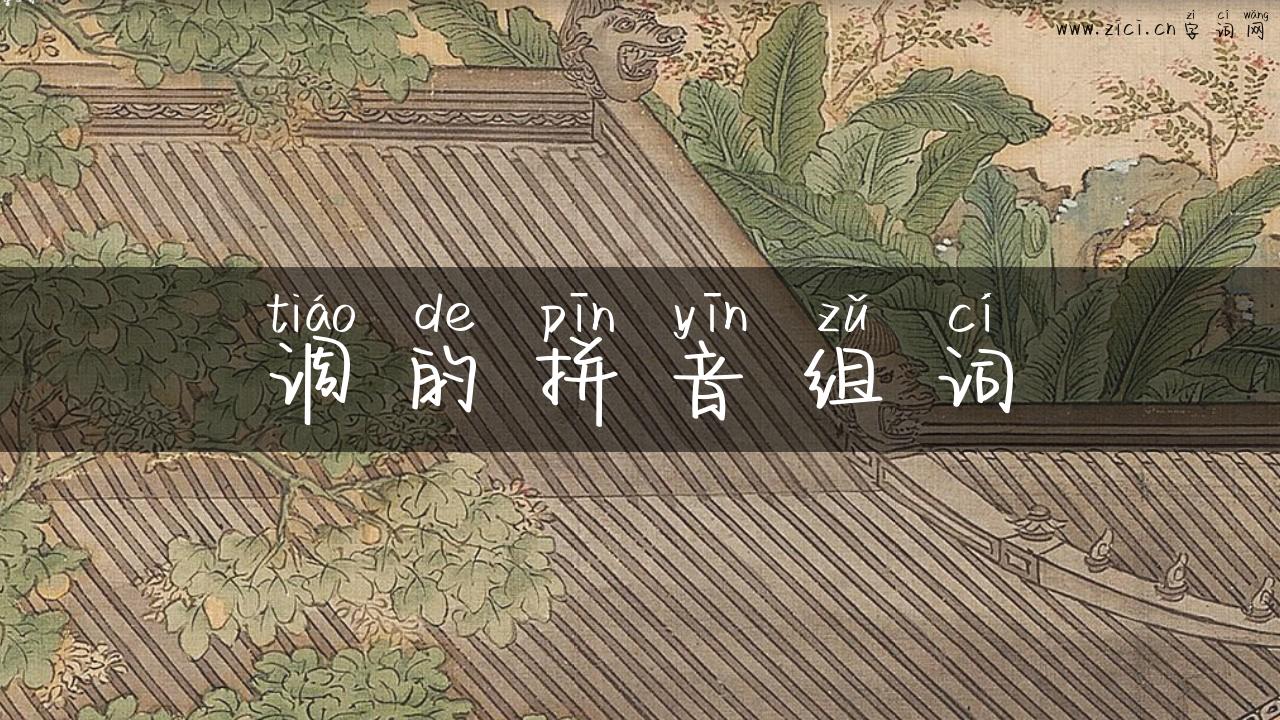 zì cí wǎng
www.zici.cn 字词网
tiáo de pīn yīn zǔ cí
调的拼音组词